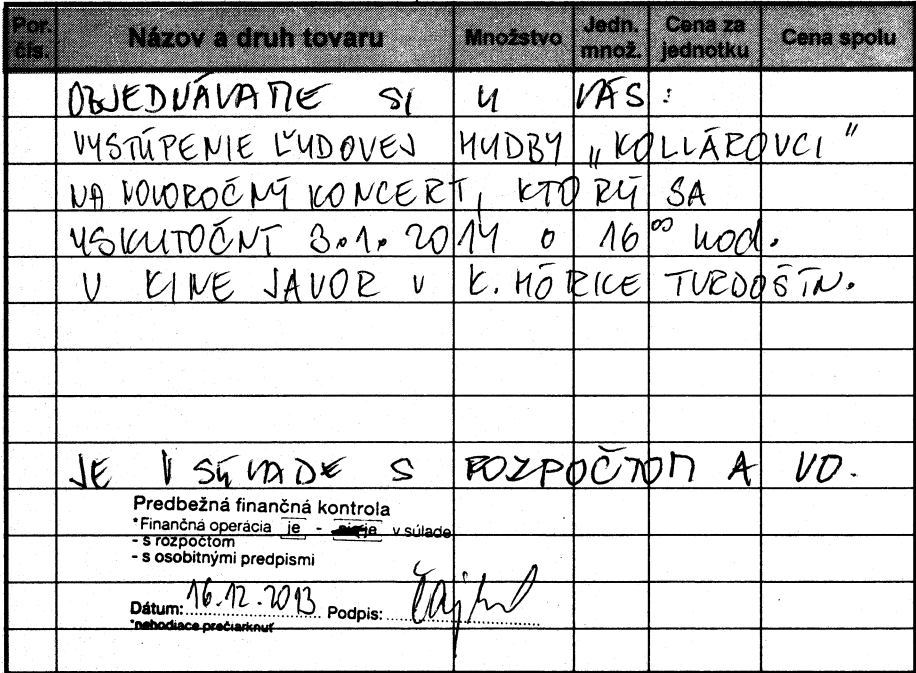 Por. čís. Názov a druh tovaru Množstvo Jedn. množ. Cena za jednotku Cena spolu
OBJEDNÁVAME SI U VÁS:
VYSTÚPENIE ĽUDOVEJ HUDBY „KOLLÁROVCI"
NA NOVOROČNÝ KONCERT, KTORÝ SA
USKUTOČNÍ 3.1.2014 o 16⁰⁰ hod.
V KINE JAVOR V K. HÔRKE TVRDOŠÍN.
JE V SÚLADE S ROZPOČTOM A VO.
Predbežná finančná kontrola
*Finančná operácia je - nie je v súlade
- s rozpočtom
- s osobitnými predpismi
Dátum: 16.12.2013 Podpis:
*nehodiace prečiarknuť